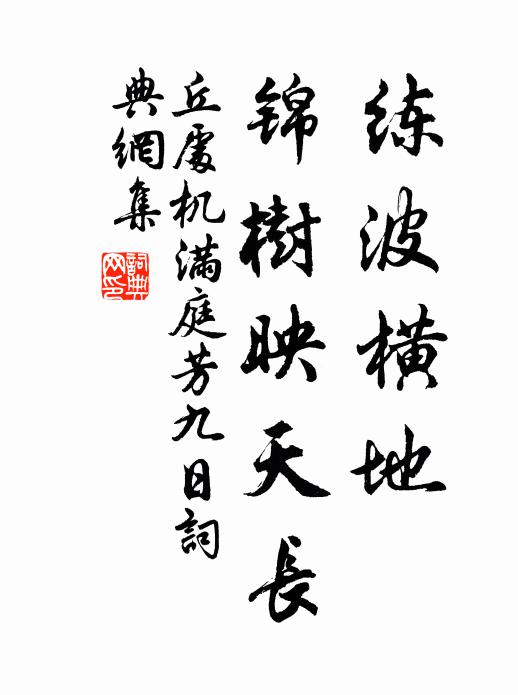 练波横地
锦樹映天長
丘處机满庭芳九日詞
典網集
詞典網印